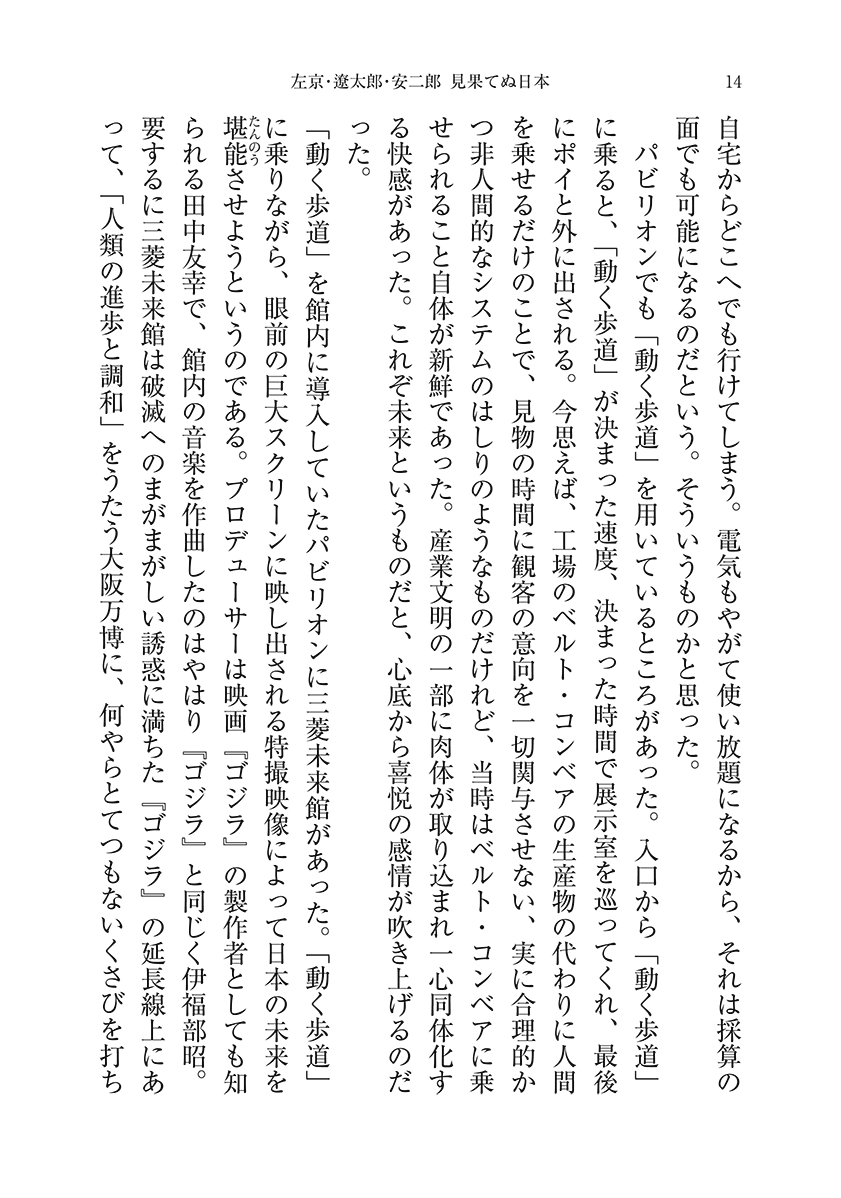 左京・遼太郎・安二郎 見果てぬ日本
14
自宅からどこへでも行けてしまう。電気もやがて使い放題になるから、それは採算の
面でも可能になるのだという。そういうものかと思った。
パビリオンでも「動く歩道」を用いているところがあった。入口から「動く歩道」
に乗ると、「動く歩道」が決まった速度、決まった時間で展示室を巡ってくれ、最後
にポイと外に出される。今思えば、工場のベルト・コンベアの生産物の代わりに人間
を乗せるだけのことで、見物の時間に観客の意向を一切関与させない、実に合理的か
つ非人間的なシステムのはしりのようなものだけれど、当時はベルト・コンベアに乗
せられること自体が新鮮であった。産業文明の一部に肉体が取り込まれ一心同体化す
る快感があった。これぞ未来というものだと、心底から喜悦の感情が吹き上げるのだ
った。
「動く歩道」を館内に導入していたパビリオンに三菱未来館があった。「動く歩道」
に乗りながら、眼前の巨大スクリーンに映し出される特撮映像によって日本の未来を
たんのう
堪能させようというのである。プロデューサーは映画『ゴジラ』の製作者としても知
られる田中友幸で、館内の音楽を作曲したのはやはり『ゴジラ』と同じく伊福部昭。
要するに三菱未来館は破滅へのまがまがしい誘惑に満ちた『ゴジラ』の延長線上にあ
って、「人類の進歩と調和」をうたう大阪万博に、何やらとてつもないくさびを打ち